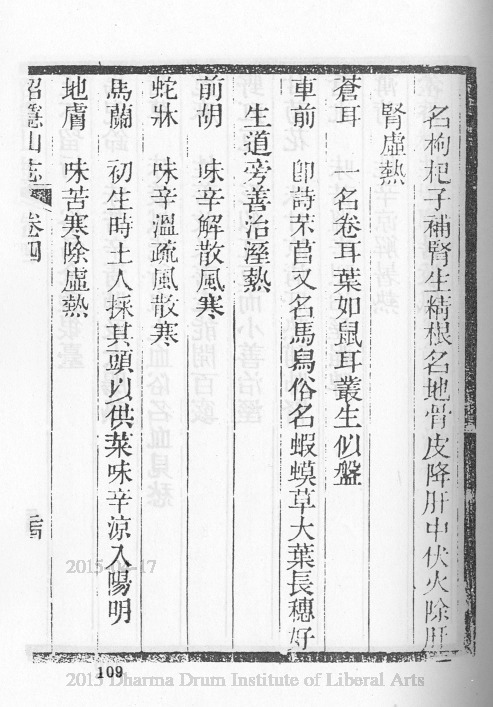 名枸杞子補腎生精根名地骨皮降肝中伏火除肝
腎虛熱
蒼耳 一名卷耳葉如鼠耳叢生似盤
車前 卽詩芣苢又名馬舄俗名蝦蟆草大葉長穗好
生道旁善治溼熱
前胡 味辛解散風寒
蛇牀 味辛溫疏風散寒
馬蘭 初生時土人採其頭以供菜味辛涼入陽明
地膚 味苦寒除虛熱
招隱山志 卷四
109
2015-04-17
2015 Dharma Drum Institute of Liberal Arts